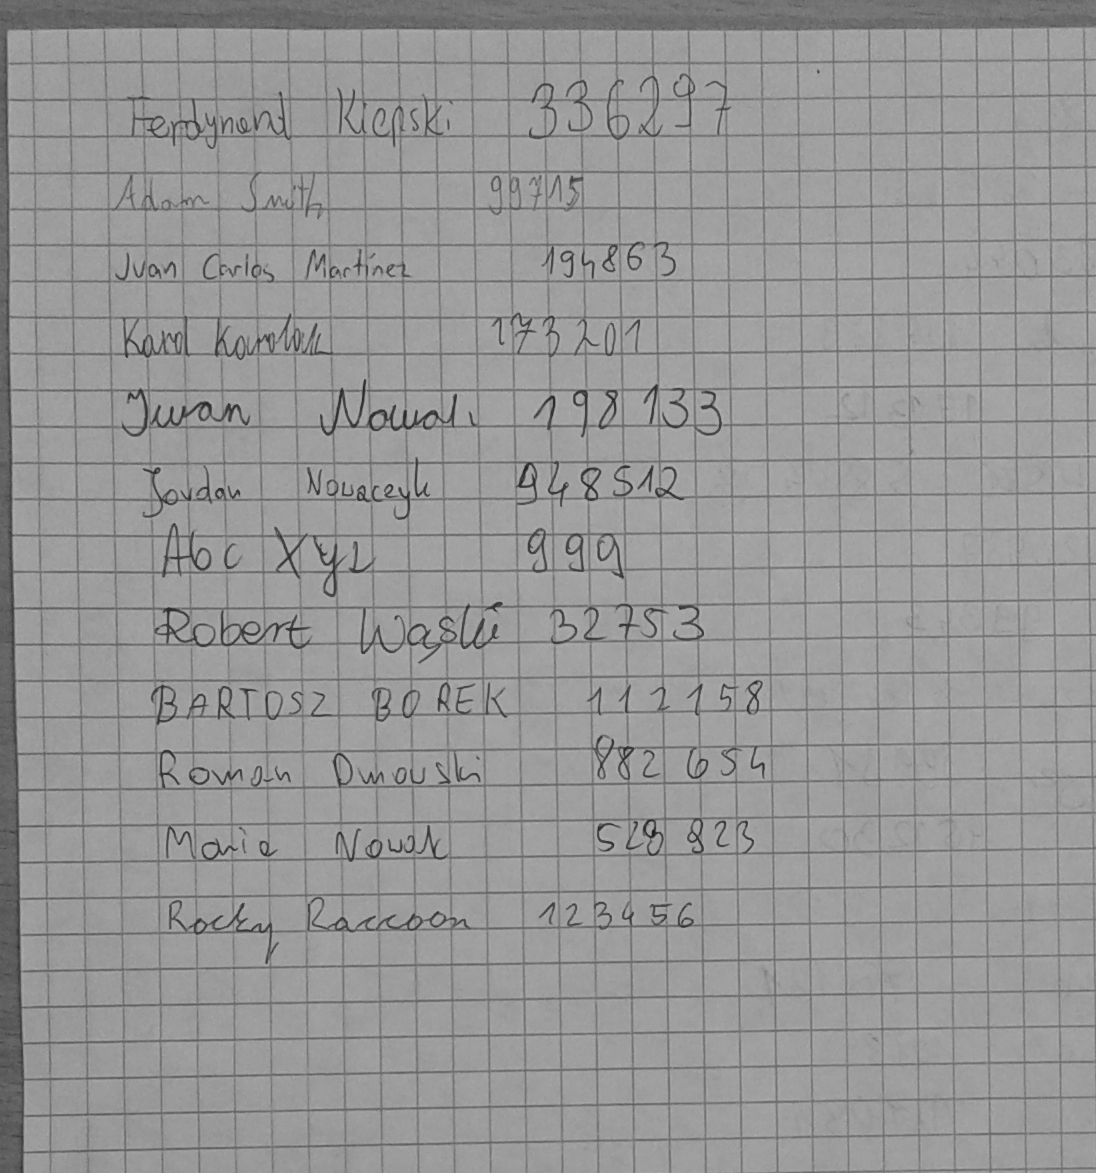 Ferdynand Kiepski 336297
Adam Smith 99715
Juan Carlos Martinez 194863
Karol Karolak 173201
Iwan Nowak 198133
Jordan Novaceyk 948512
Abc Xyz 999
Robert Wąski 32753
BARTOSZ BOREK 112158
Roman Dmowski 882654
Maria Nowak 528923
Rocky Raccoon 123456